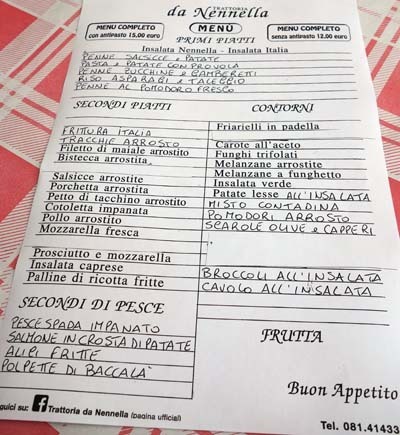 TRATTORIA
da Nennella
MENU COMPLETO
con antipasto 15,00 euro
MENÙ
MENU COMPLETO
senza antipasto 12,00 euro
PRIMI PIATTI
Insalata Nennella - Insalata Italia
PENNE SALSICCE e PATATE
PASTA e PATATE CON PROVOLA
PENNE ZUCCHINE e GAMBERETI
RISO ASPARAGI e TALEGGIO
PENNE AL POMODORO FRESCO
SECONDI PIATTI
FRITTURA ITALIA
TRACCHIE ARROSTO
Filetto di maiale arrostito
Bistecca arrostita
Salsicce arrostite
Porchetta arrostita
Petto di tacchino arrostito
Cotoletta impanata
Pollo arrostito
Mozzarella fresca
Prosciutto e mozzarella
Insalata caprese
Palline di ricotta fritte
CONTORNI
Friarielli in padella
Carote all'aceto
Funghi trifolati
Melanzane arrostite
Melanzane a funghetto
Insalata verde
Patate lesse ALL'INSALATA
MISTO CONTADINA
POMODORI ARROSTO
SCAROLE OLIVE e CAPPERI
BROCCOLI ALL'INSALATA
CAVOLO ALL'INSALATA
SECONDI DI PESCE
PESCE SPADA IMPANATO
SALMONE IN CROSTA DI PATATE
ALICI FRITTE
POLPETTE DI BACCALA'
FRUTTA
Buon Appetito
guici su: f Trattoria da Nennella (pagina ufficiale)
Tel. 081.41433